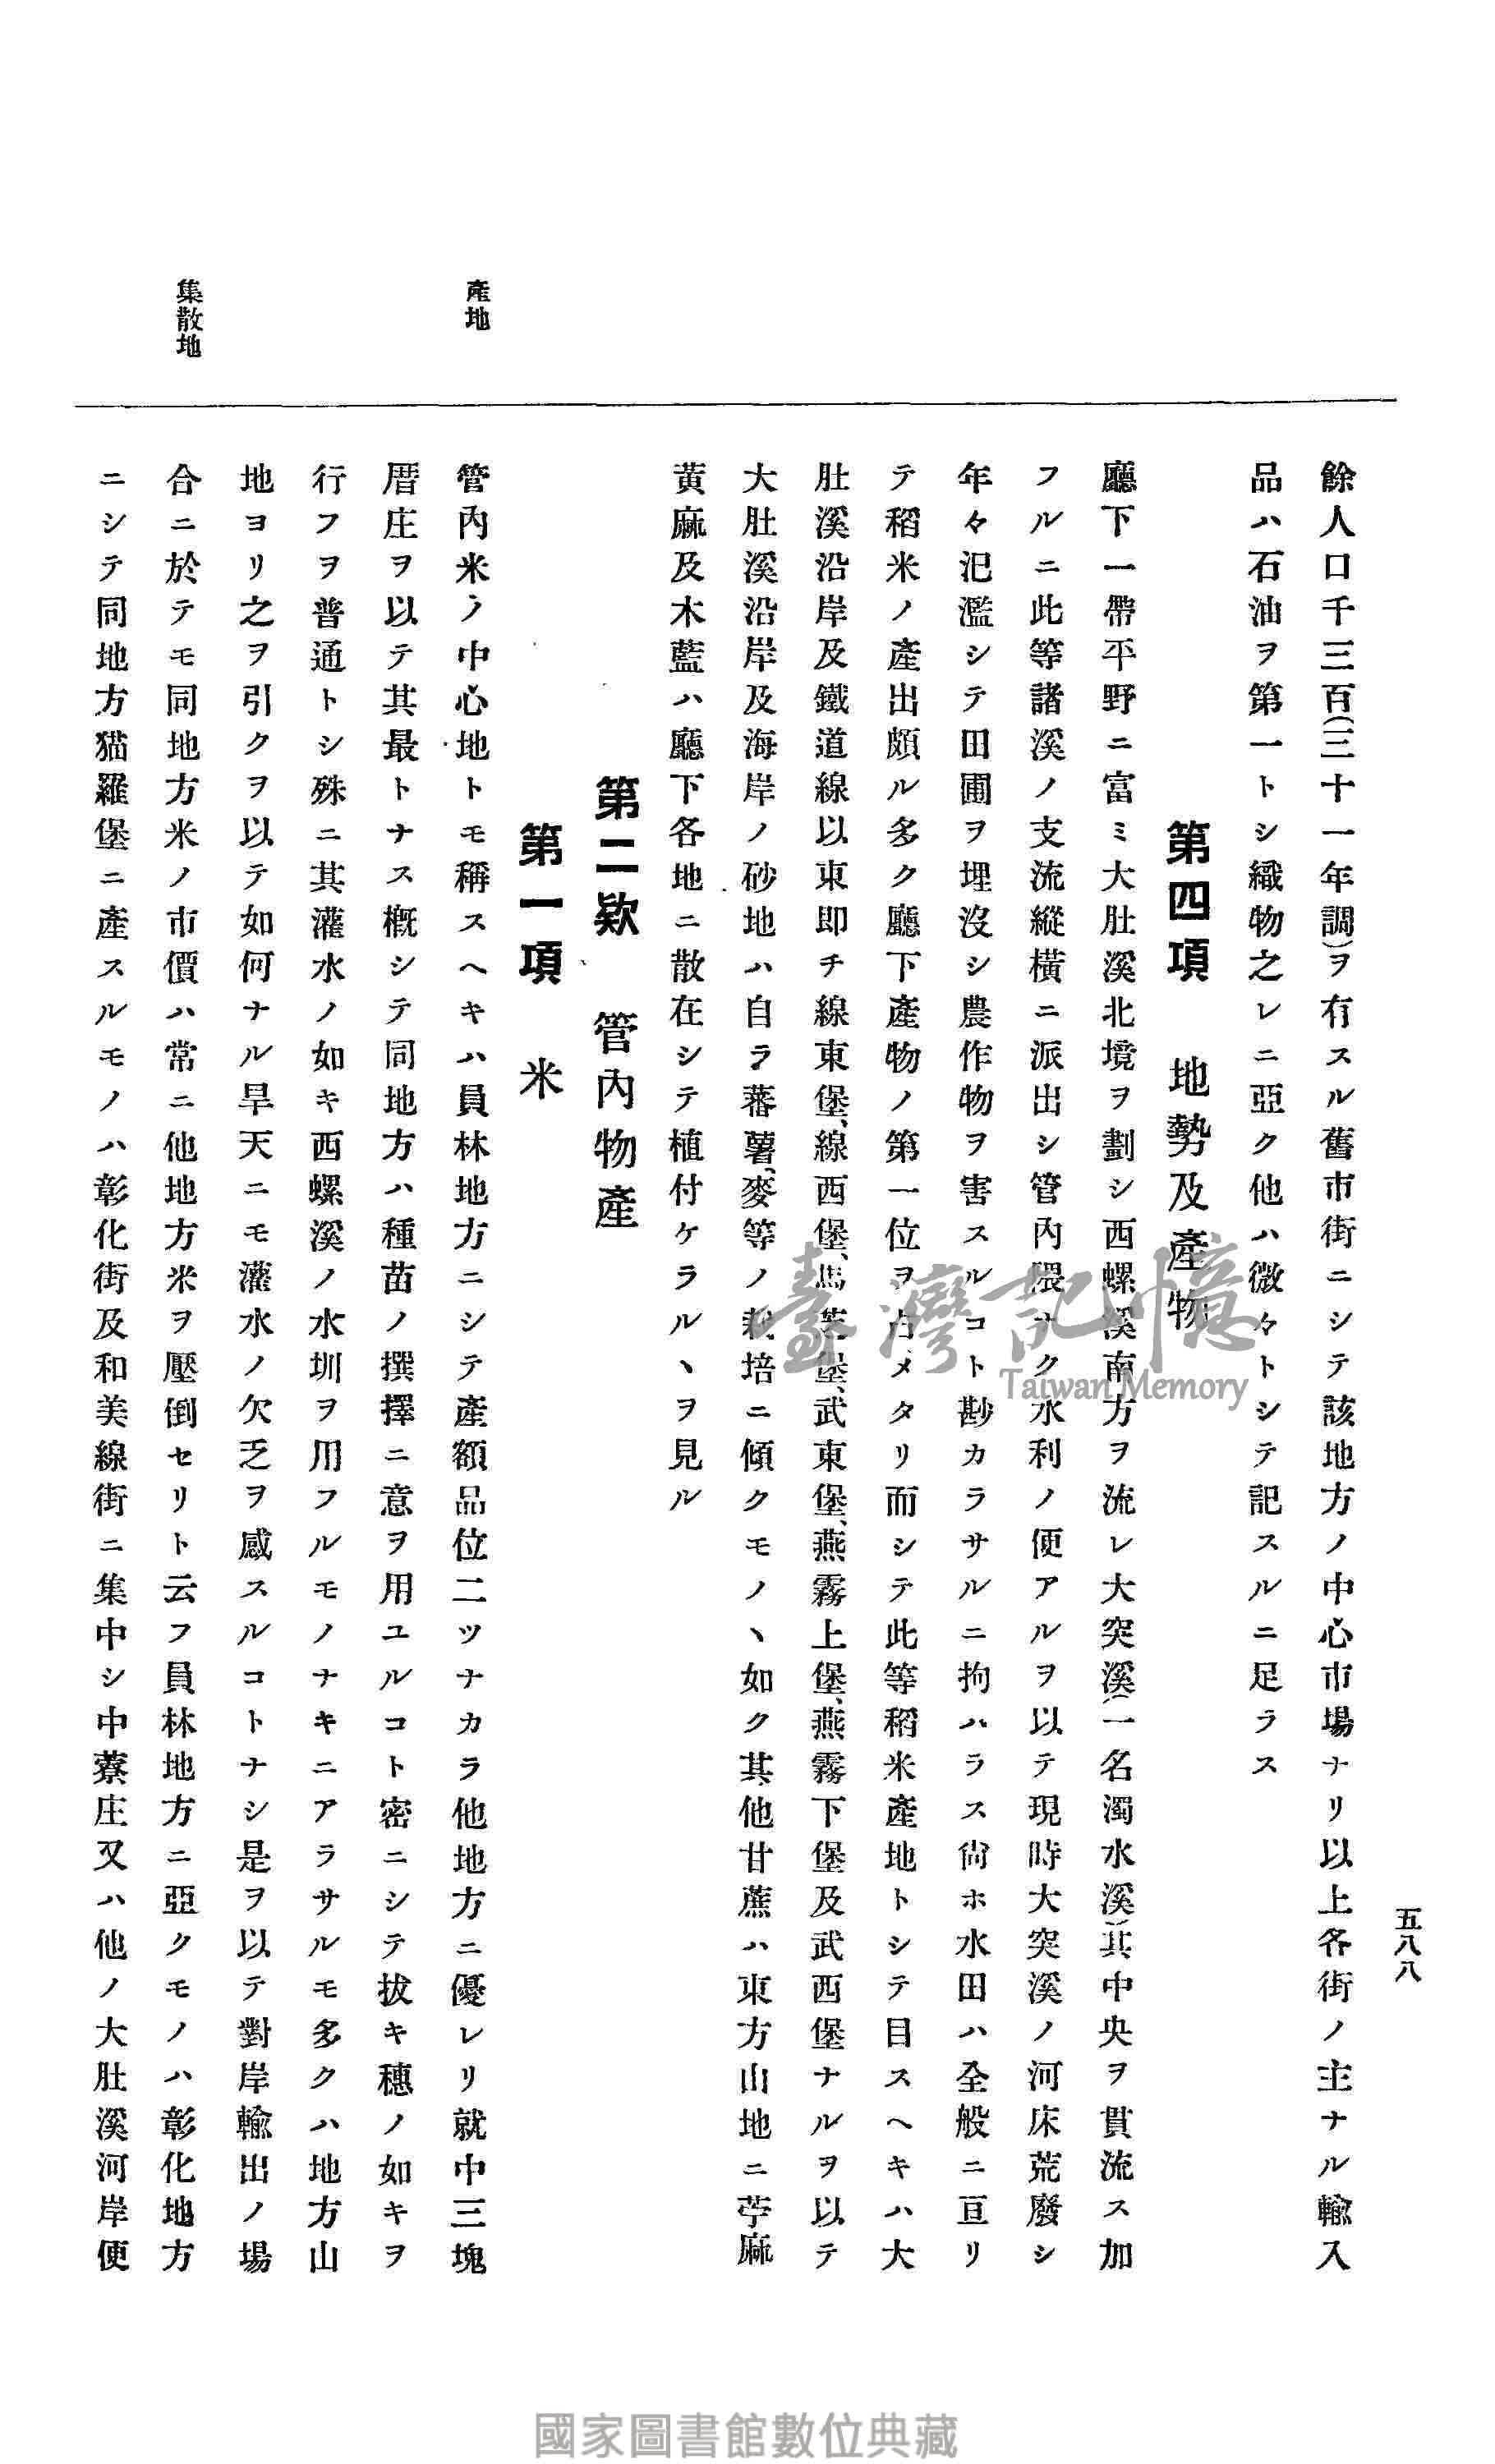 五八八
餘人口千三百(三十一年調)ヲ有スル舊市街ニシテ該地方ノ中心市場ナリ以上各街ノ主ナル輸入
品ハ石油ヲ第一トシ織物之レニ亞ク他ハ微々トシテ記スルニ足ラス
第四項　地勢及產物
廳下一帶平野ニ富ミ大肚溪北境ヲ劃シ西螺溪南方ヲ流レ大突溪(一名濁水溪)其中央ヲ貫流ス加
フルニ此等諸溪ノ支流縱橫ニ派出シ管內隈ナク水利ノ便アルヲ以テ現時大突溪ノ河床荒廢シ
年々氾濫シテ田圃ヲ埋沒シ農作物ヲ害スルコト尠カラサルニ拘ハラス尙ホ水田ハ全般ニ亘リ
テ稻米ノ產出頗ル多ク廳下產物ノ第一位ヲ占メタリ而シテ此等稻米產地トシテ目スヘキハ大
肚溪沿岸及鐵道線以東即チ線東堡、線西堡、馬芝堡、武東堡、燕霧上堡、燕霧下堡及武西堡ナルヲ以テ
大肚溪沿岸及海岸ノ砂地ハ自ラ蕃薯、麥等ノ栽培ニ傾クモノヽ如ク其他甘蔗ハ東方山地ニ苧麻
黃麻及木藍ハ廳下各地ニ散在シテ植付ケラルヽヲ見ル
第二欵　管內物產
第一項　米
產地
管內米ノ中心地トモ稱スヘキハ員林地方ニシテ產額品位二ツナカラ他地方ニ優レリ就中三塊
厝庄ヲ以テ其最トナス概シテ同地方ハ種苗ノ撰擇ニ意ヲ用ユルコト密ニシテ拔キ穗ノ如キヲ
行フヲ普通トシ殊ニ其灌水ノ如キ西螺溪ノ水圳ヲ用フルモノナキニアラサルモ多クハ地方山
地ヨリ之ヲ引クヲ以テ如何ナル旱天ニモ灌水ノ欠乏ヲ感スルコトナシ是ヲ以テ對岸輸出ノ場
集散地
合ニ於テモ同地方米ノ市價ハ常ニ他地方米ヲ壓倒セリト云フ員林地方ニ亞クモノハ彰化地方
ニシテ同地方猫羅堡ニ產スルモノハ彰化街及和美線街ニ集中シ中藔庄又ハ他ノ大肚溪河岸便
臺灣記憶
Taiwan Memory
國家圖書館數位典藏